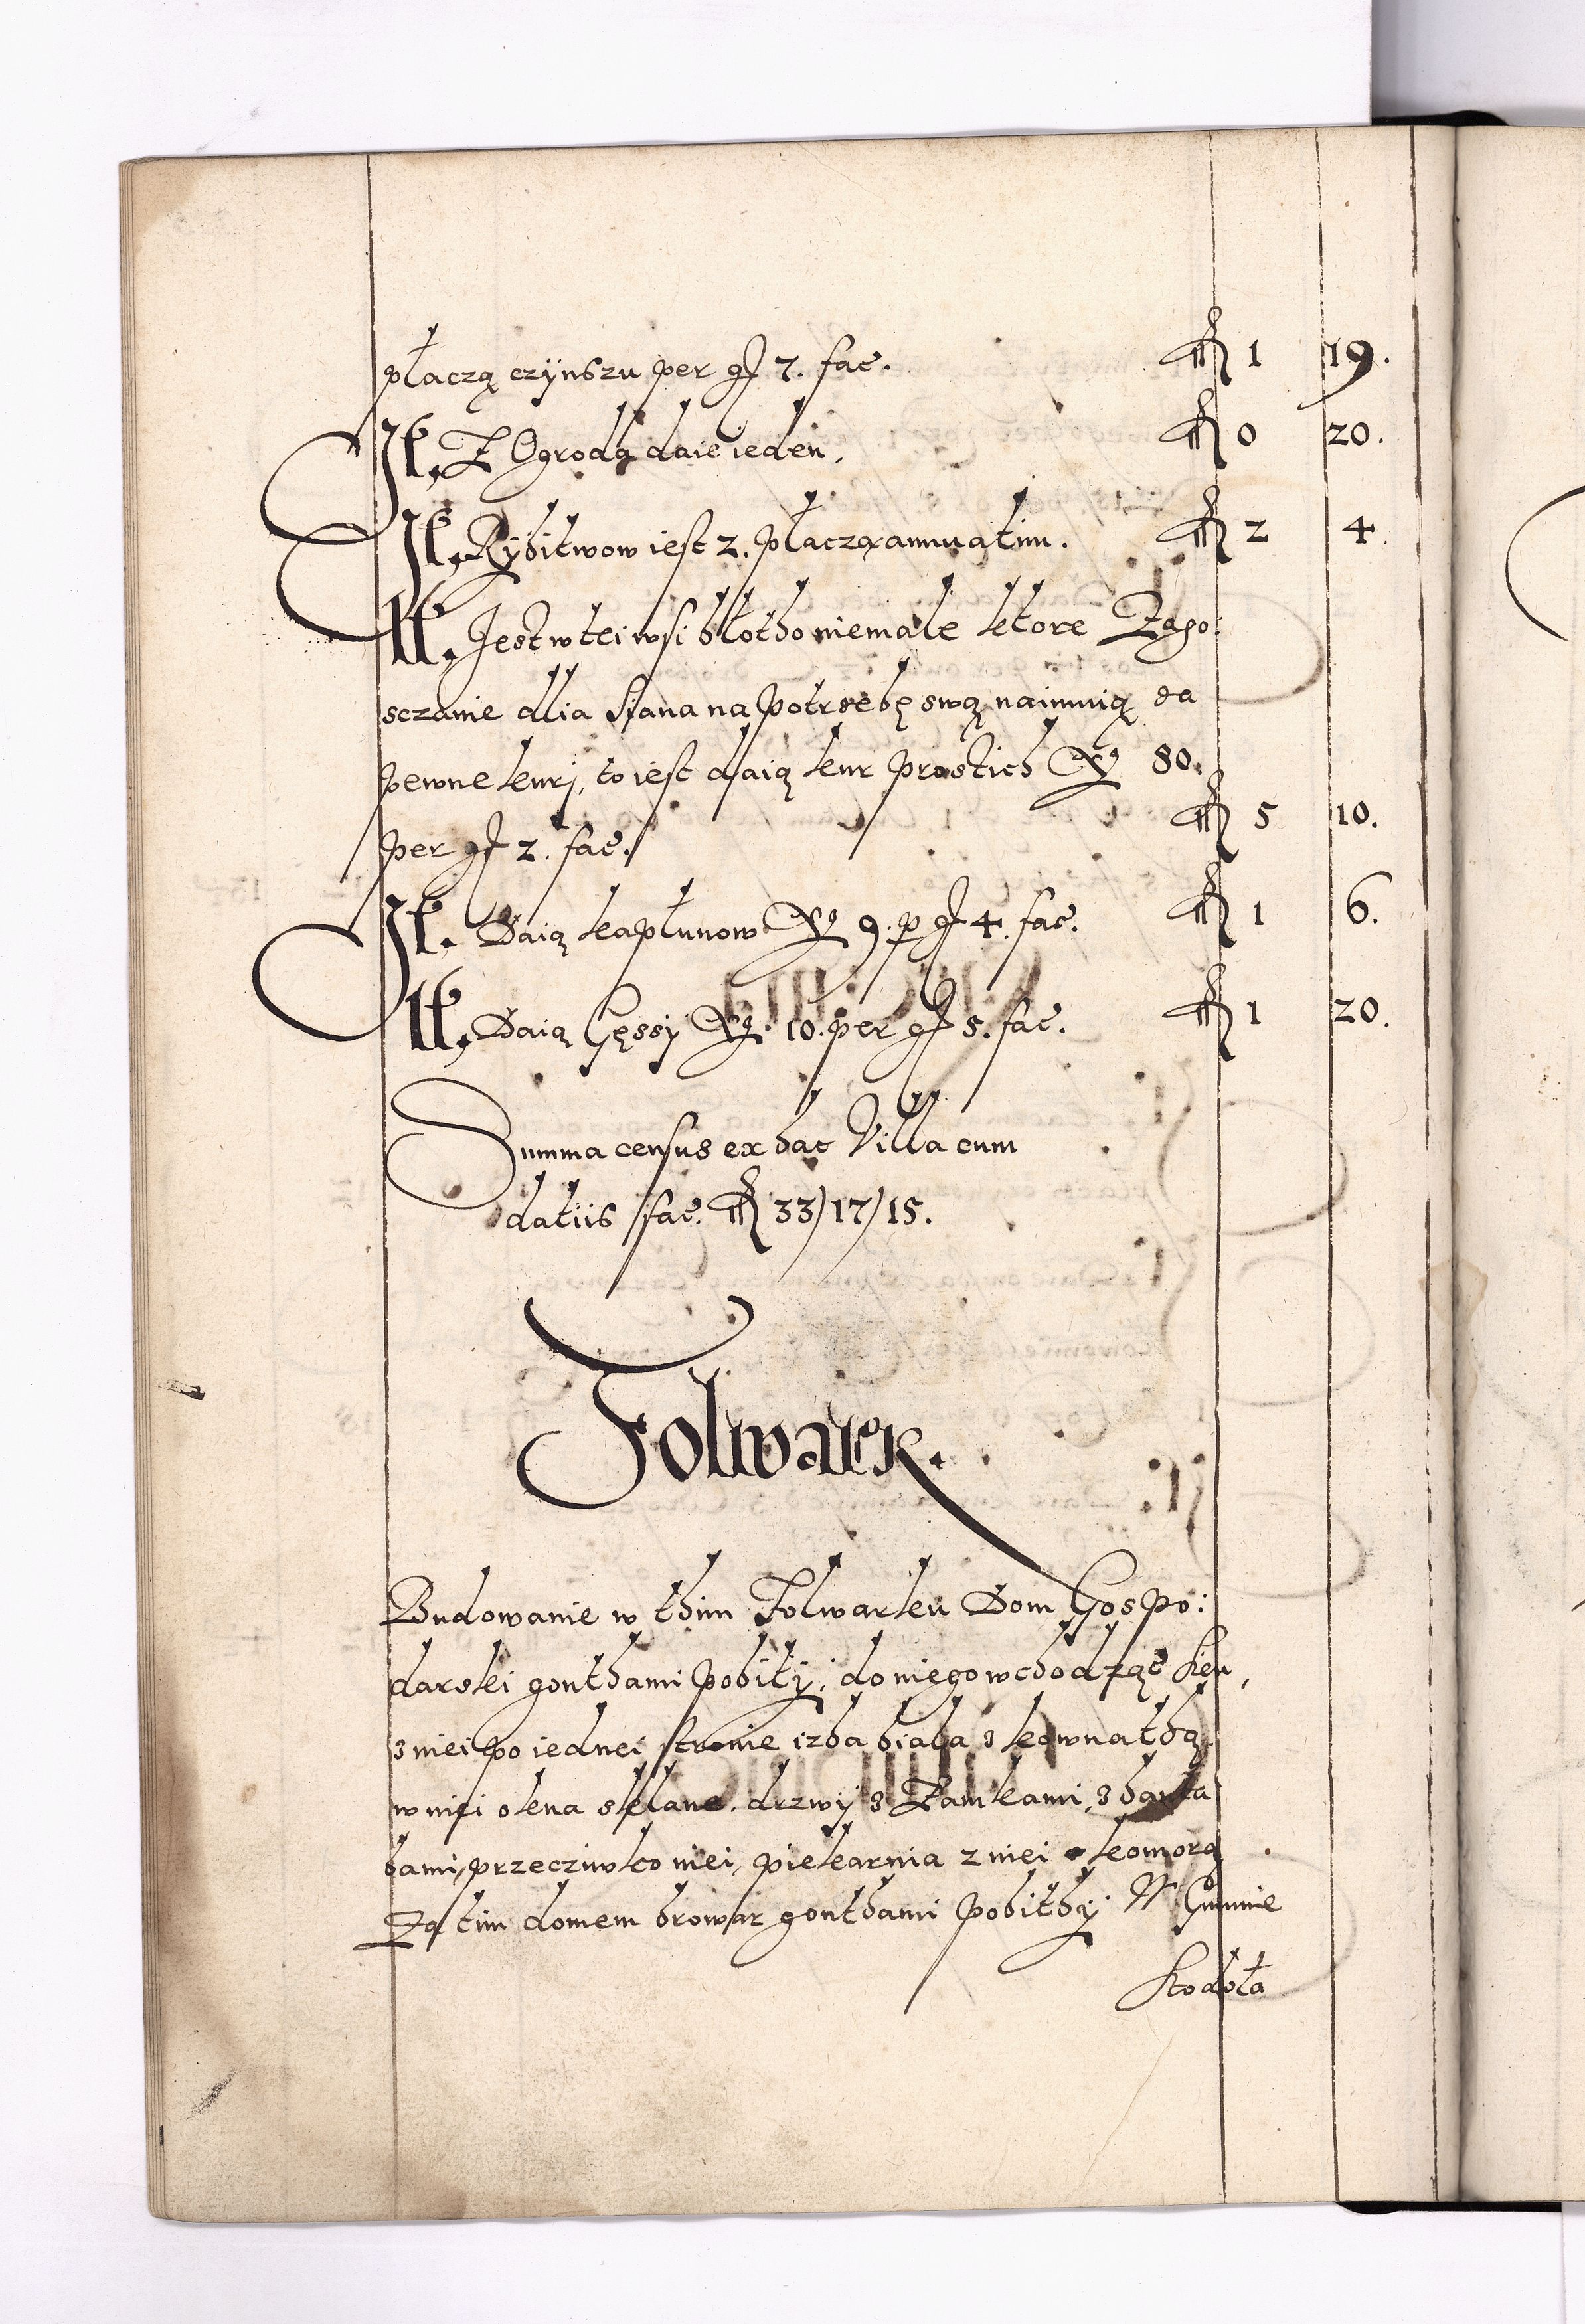 płaczą czÿnszu per gſ 7. fac. fl 1 19.
It. Z Ogroda daie ieden. fl 0 20.
It. Rybitwow iest 2. płaczą annuatim. fl 2 4.
It. Jest w tei wsi błotho niemałe ktore Zago:
sczanie dlia Siana na potrzebę swą naimuią za
pewne kurÿ, to iest daią kur prostich No 80.
per gſ 2. fac. fl 5 10.
It. Daią kapłunow No 9. p gſ 4. fac. fl 1 6.
It. Daią Gęssÿ No. 10. per gſ 5. fac. fl 1 20.
Summa census ex hac Villa cum
datiis fac. fl 33/17/15.
Folwark.
Budowanie w thim Folwarku Dom Gospo:
darski gonthami pobitÿ, do niego wchodząc Sien,
z niei po iednei stronie izba biała z kownathą
w niei okna sklane, drzwÿ z Zamkami, z hanta
bami, przeciwko niei, piekarnia z niei komorą
Za tim domem browar gonthami pobithÿ W Gumnie
Stodoła